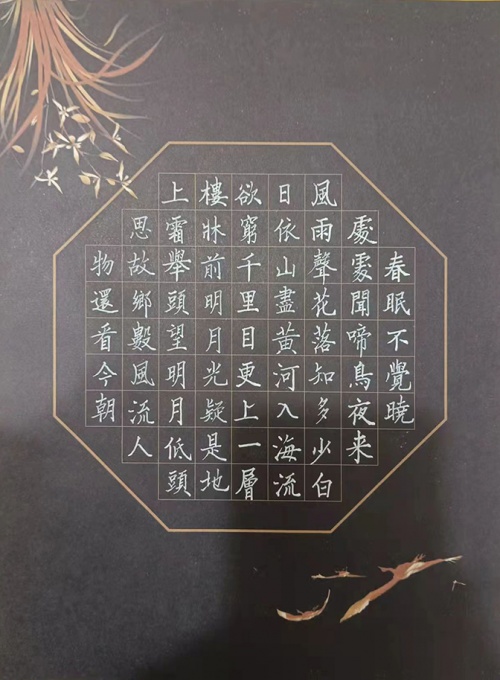 春眠不覺曉
處處聞啼鳥夜来
風雨聲花落知多少白
日依山盡黃河入海流
欲窮千里目更上一層
樓牀前明月光疑是地
上霜舉頭望明月低頭
思故鄉數風流人
物還看今朝